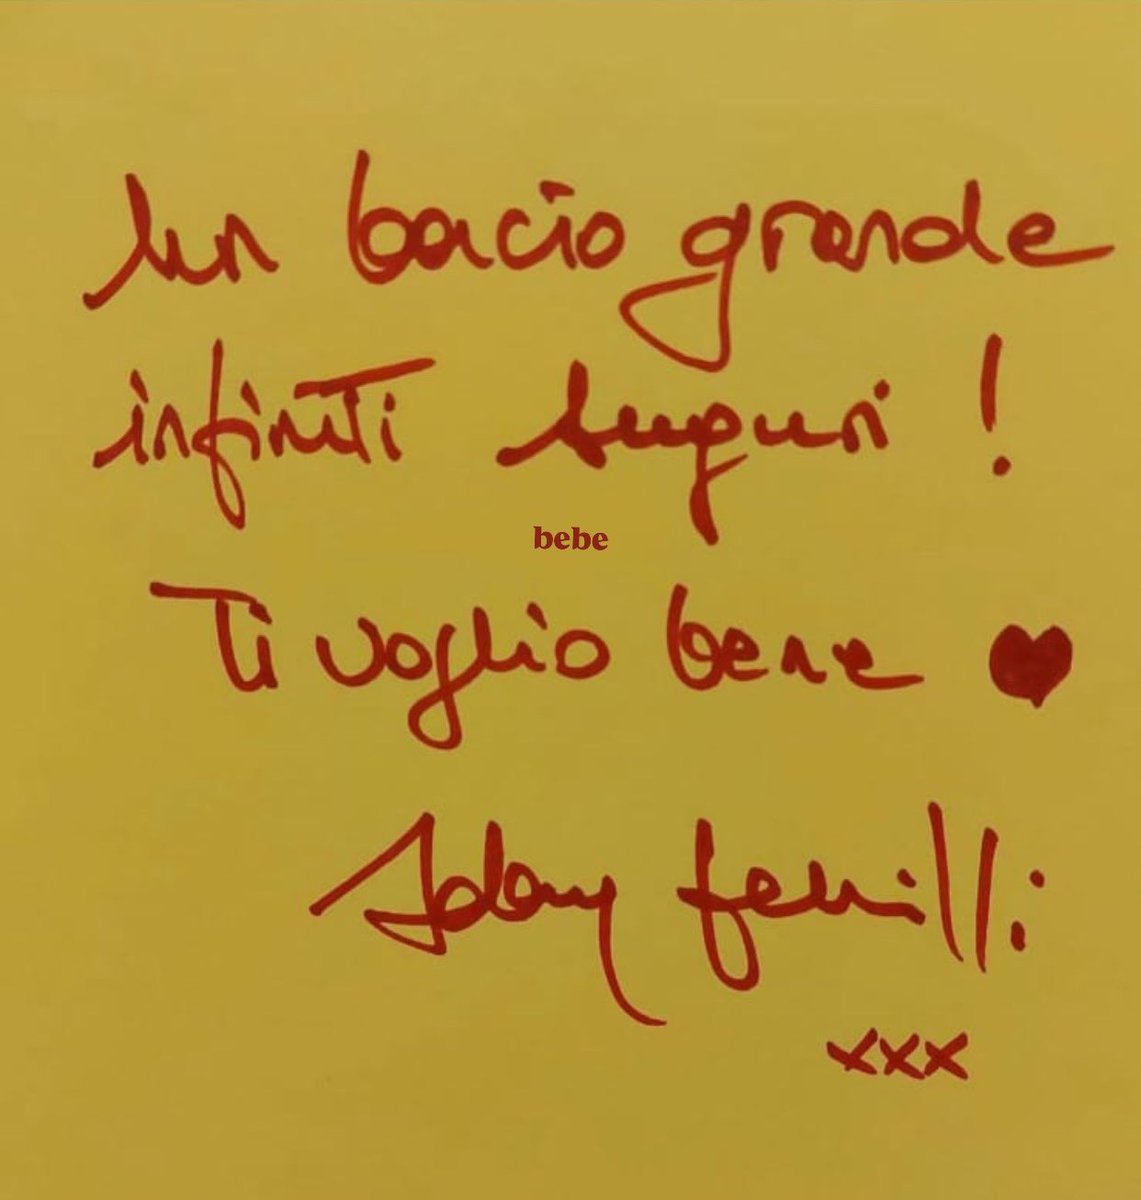 Un bacio grande
infiniti Auguri !
bebe
Ti voglio bene ♥
xxx